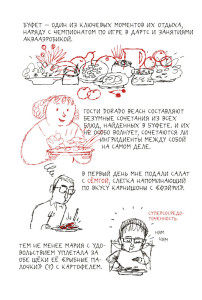 БУФЕТ – ОДИН ИЗ КЛЮЧЕВЫХ МОМЕНТОВ ИХ ОТДЫХА,
НАРЯДУ С ЧЕМПИОНАТОМ ПО ИГРЕ В ДАРТС И ЗАНЯТИЯМИ
АКВААЭРОБИКОЙ.
ГОСТИ DORADO BEACH СОСТАВЛЯЮТ
БЕЗУМНЫЕ СОЧЕТАНИЯ ИЗ ВСЕХ
БЛЮД, НАЙДЕННЫХ В БУФЕТЕ, И ИХ
НЕ ОСОБО ВОЛНУЕТ, СОЧЕТАЮТСЯ ЛИ
ИНГРЕДИЕНТЫ МЕЖДУ СОБОЙ
НА САМОМ ДЕЛЕ.
В ПЕРВЫЙ ДЕНЬ МНЕ ПОДАЛИ САЛАТ
С СЁМГОЙ, СЛЕГКА НАПОМИНАЮЩИЙ
ПО ВКУСУ КОРНИШОНЫ С
СУПЕРСОСРЕДО-
ТОЧЕННОСТЬ
НЯМ
НЯМ
ТЕМ НЕ МЕНЕЕ МАРИЯ С УДО-
ВОЛЬСТВИЕМ УПЛЕТАЛА ЗА
ОБЕ ЩЁКИ ЕЁ ПА-
ЛОЧКИ? (?) С КАРТОФЕЛЕМ.